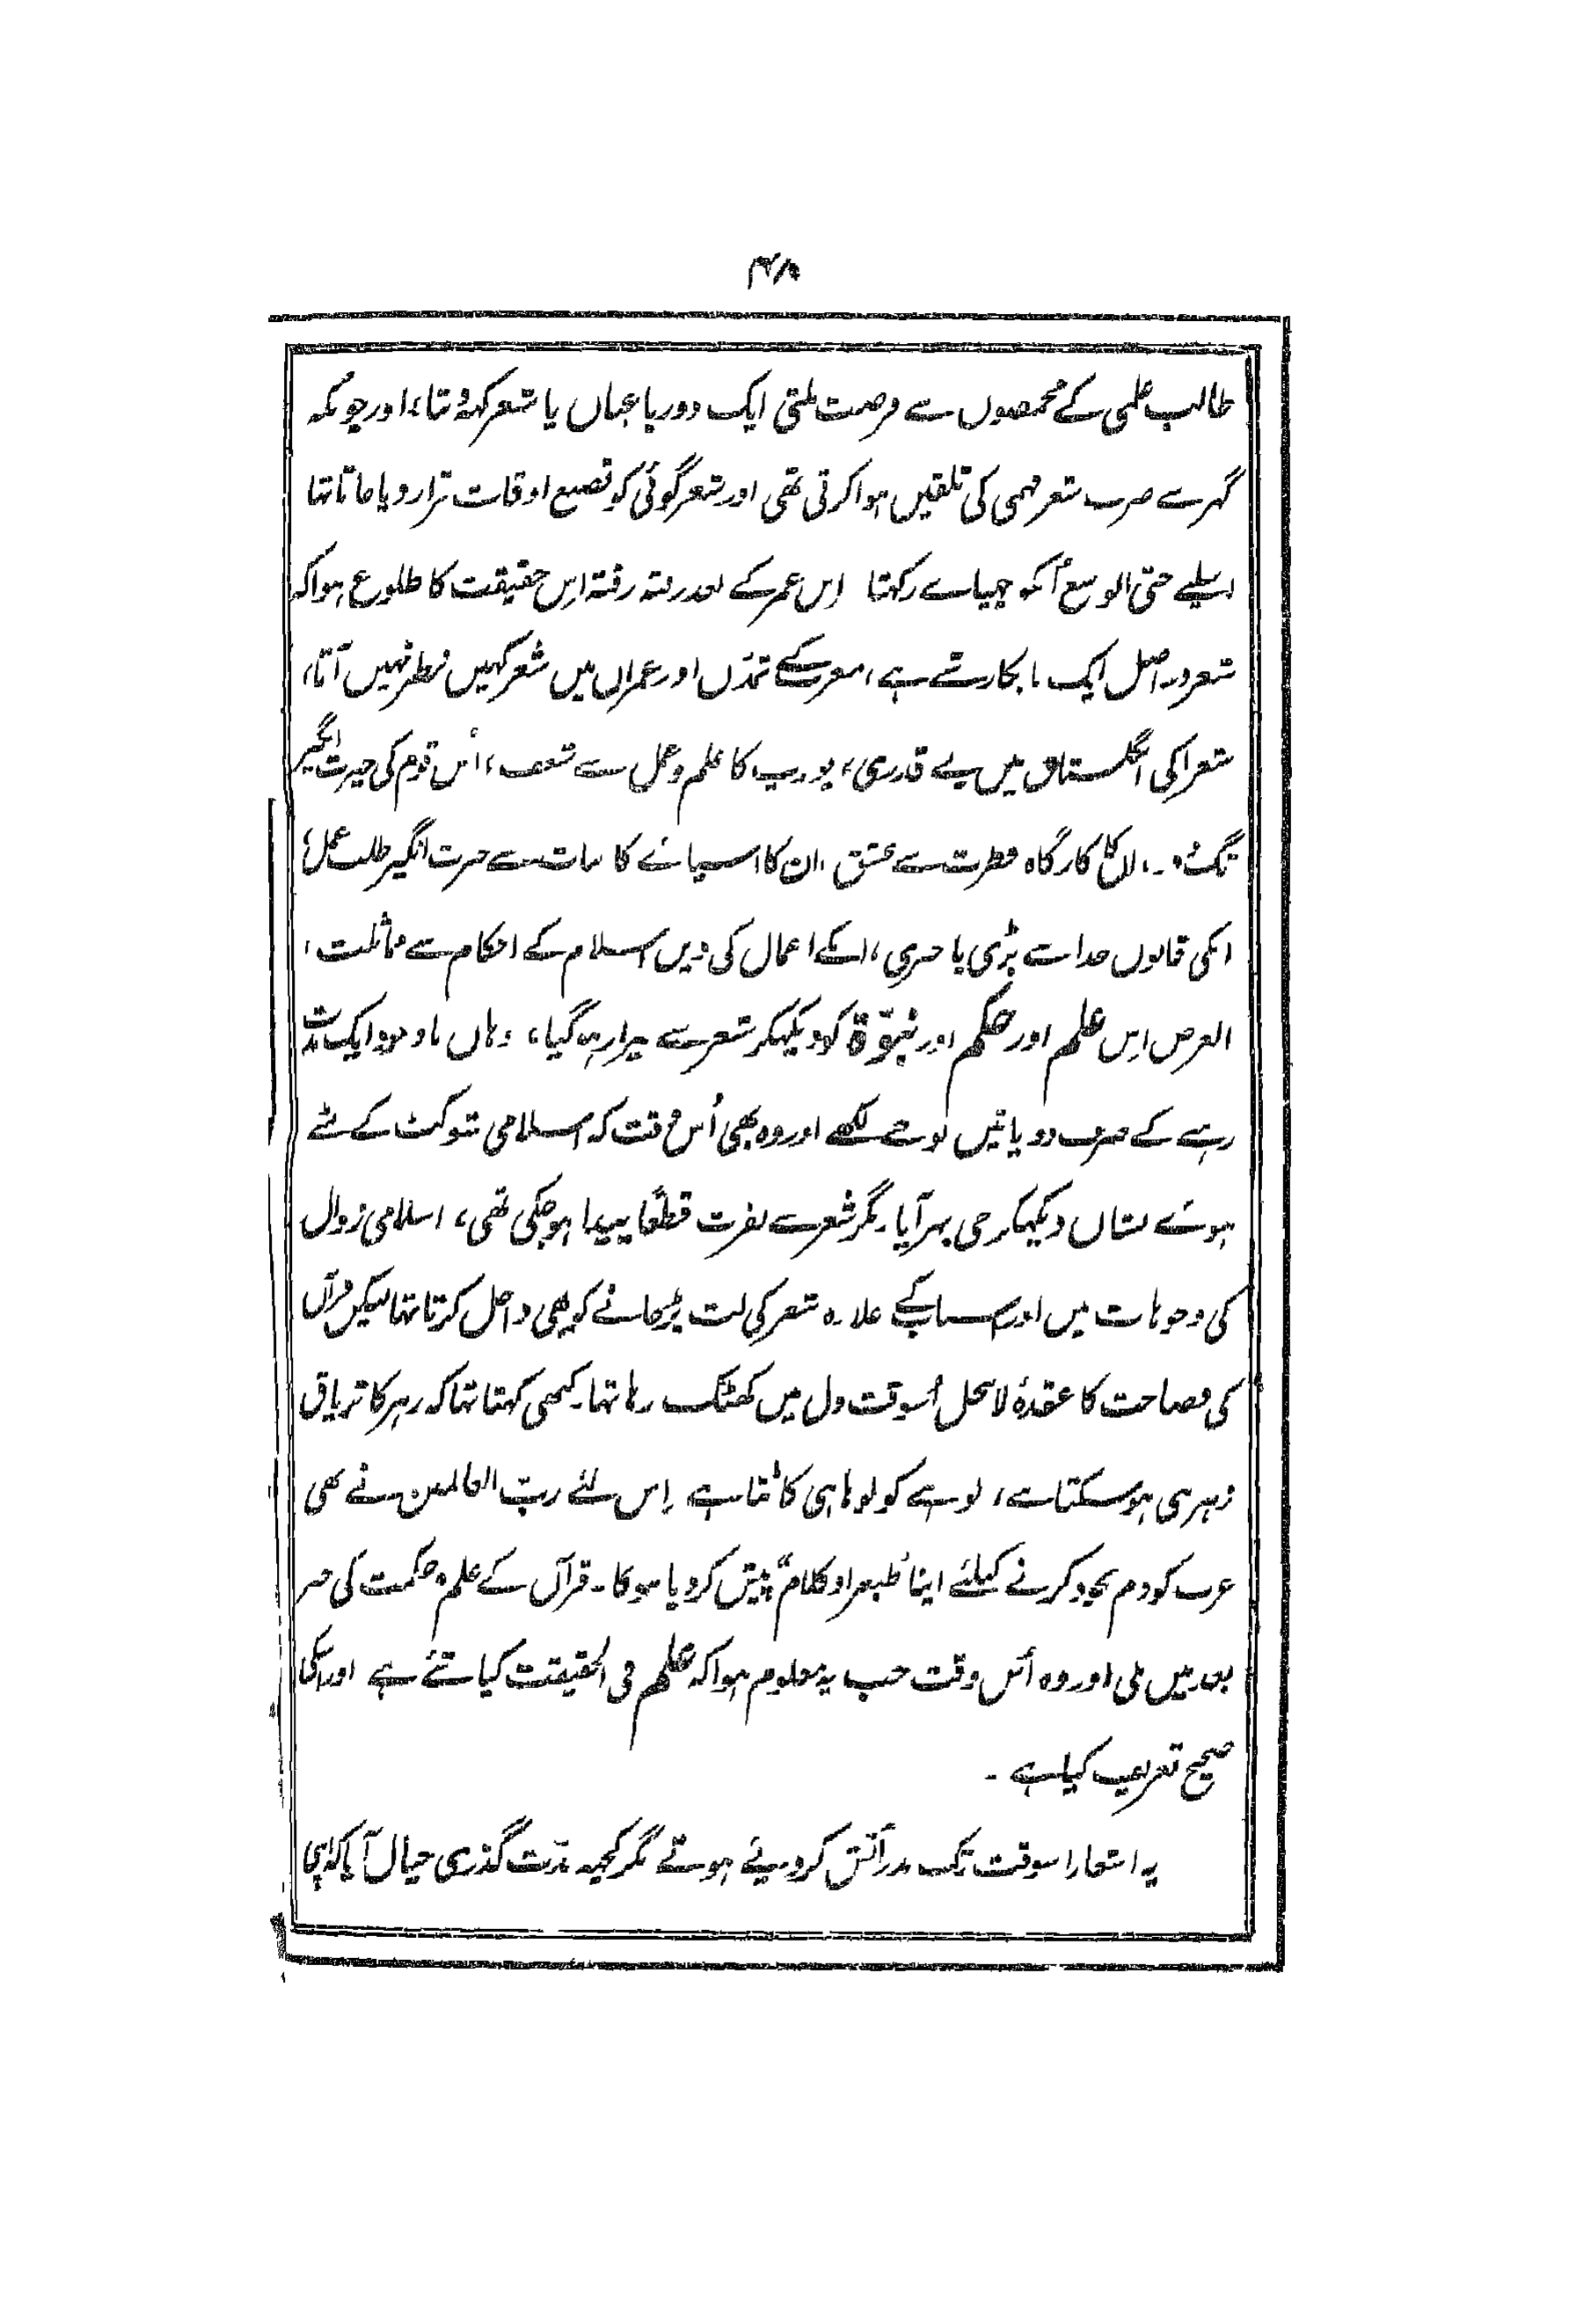 ۴۸
طالب علمی کے مخمصوں سے فرصت ملتی ایک دو رباعیاں یا شعر کہہ دیتا، اور چونکہ
گہر سے صرف شعر فہمی کی تلقین ہوا کرتی تھی اور شعر گوئی کو تضیع اوقات قرار دیا جاتا تہا
اسلیے حتی الوسع اُنکو چہپائے رکہتا اِس عمر کے بعد رفتہ رفتہ اِس حقیقت کا طلوع ہوا کہ
شعر دراصل ایک بیکار شے ہے، مغرب کے تمدّن اور عمران میں شعر کہیں نظر نہیں آتا،
شعرا کی انگلستان میں بے قدری، یورپ کا علم و عمل سے شغف، اُس قوم کی حیرت انگیز
تگ و دو، ان کا کارگاہ فطرت سے عشق، ان کا اسبابِ کائنات سے حیرت انگیز طلب عمل،
انکی قانون خدا سے بڑی باخبری، انکے اعمال کی دین اسلام کے احکام سے مماثلت،
الغرض اِس علم اور حکم اور نبوّۃ کو دیکہکر شعر سے بیزار ہو گیا، وہاں باوجود ایک مدّت
رہنے کے صرف دو یا تین نوحے لکھے اور وہ بھی اُس وقت کہ اسلامی شوکت کے مٹے
ہوئے نشاں دیکہکر جی بہر آیا۔ مگر شعر سے نفرت قطعاً پیدا ہو چکی تھی، اسلامی زوال
کی وجوہات میں اور اسباب کے علاوہ شعر کی لت پڑ جانے کو بھی داخل کرتا تہا لیکن قرآں
کی فصاحت کا عقدۂ لاینحل اُسوقت دل میں کھٹک رہا تہا۔ کبھی کہتا تہا کہ زہر کا تریاق
زہر ہی ہو سکتا ہے، لوہے کو لوہا ہی کاٹتا ہے اِس لئے ربّ العالمین نے بھی
عرب کو دم بخود کرنے کیلئے اپنا "طبعزاد کلام" پیش کر دیا ہوگا۔ قرآن کے علم و حکمت کی خبر
بعد میں ملی اور وہ اُس وقت جب یہ معلوم ہوا کہ علم فی الحقیقت کیا شے ہے اور اسکی
صحیح تعریف کیا ہے۔
یہ اشعار اسوقت تک نذر آتش کر دیئے ہوتے مگر کچہہ مدّت گذری خیال آیا کہ اپنی